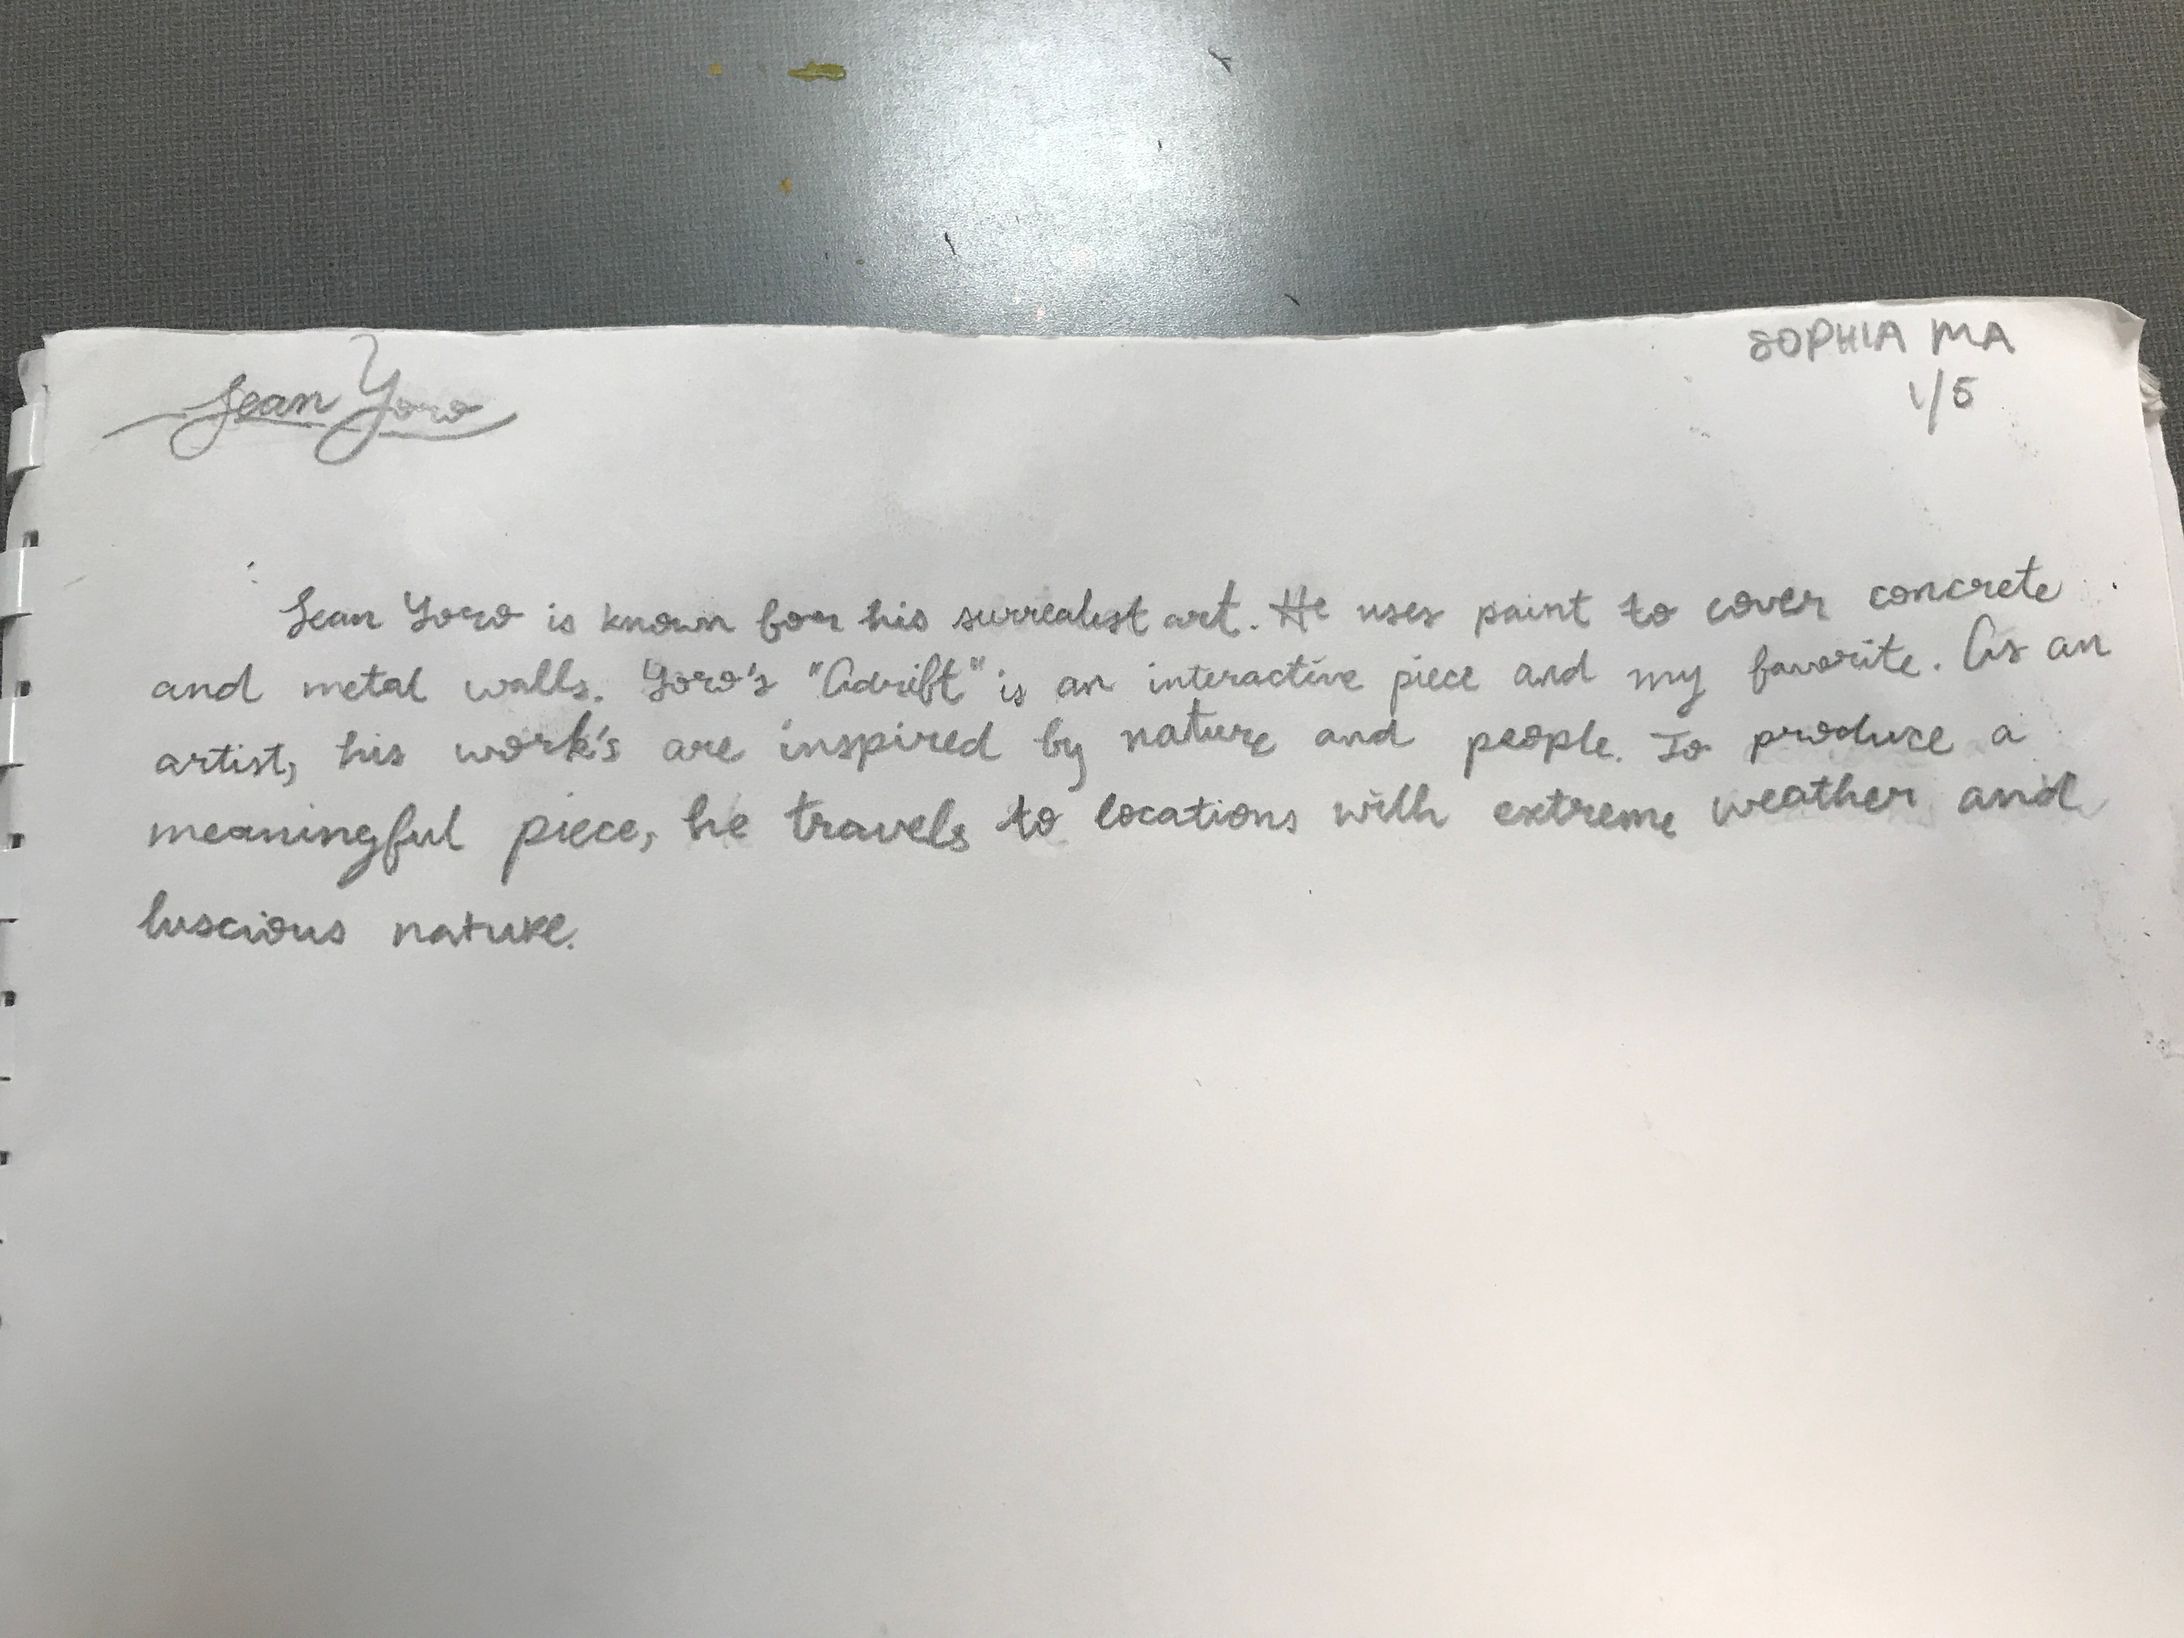 Sean Yoro
SOPHIA MA
1/5
Sean Yoro is known for his surrealist art. He uses paint to cover concrete
and metal walls. Yoro's "Adrift" is an interactive piece and my favorite. As an
artist, his work's are inspired by nature and people. To produce a
meaningful piece, he travels to locations with extreme weather and
luscious nature.